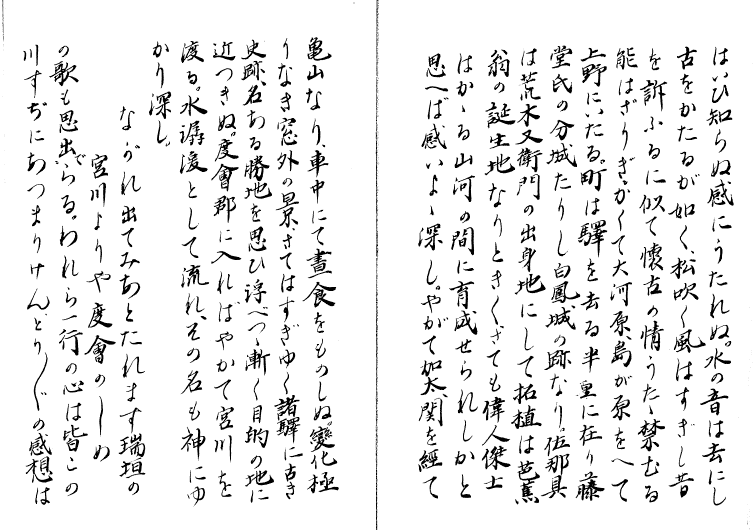 はいひ知らぬ感にうたれぬ。水の音は去にし
古をかたるが如く、松吹く風はすぎし昔
を訴ふるに似て懐古の情うたゝ禁むる
能はざりき。かくて大河原島が原をへて
上野にいたる。町は驛を去る半里に在り藤
堂氏の分城たりし白鳳城の跡なり。伍那具
は荒木又衛門の出身地にして拓植は芭蕉
翁の誕生地なりときく。さても偉人傑士
はかゝる山河の間に育成せられしかと
思へば感いよゝ深し。やがて加太、関を經て
亀山なり、車中にて晝食をものしぬ。變化極
りなき窓外の景、さてはすぎゆく諸驛に古き
史跡、名ある勝地を思ひ浮べつゝ漸く目的の地に
近つきぬ。度會郡に入ればやがて宮川を
渡る。水潺湲として流れ、その名も神にゆ
かり深し。
ながれ出てみあとたれます瑞垣の
宮川よりや度會のしめ
の歌も思出でらる。われら一行の心は皆この
川すぢにあつまりけん、とり〴〵の感想は